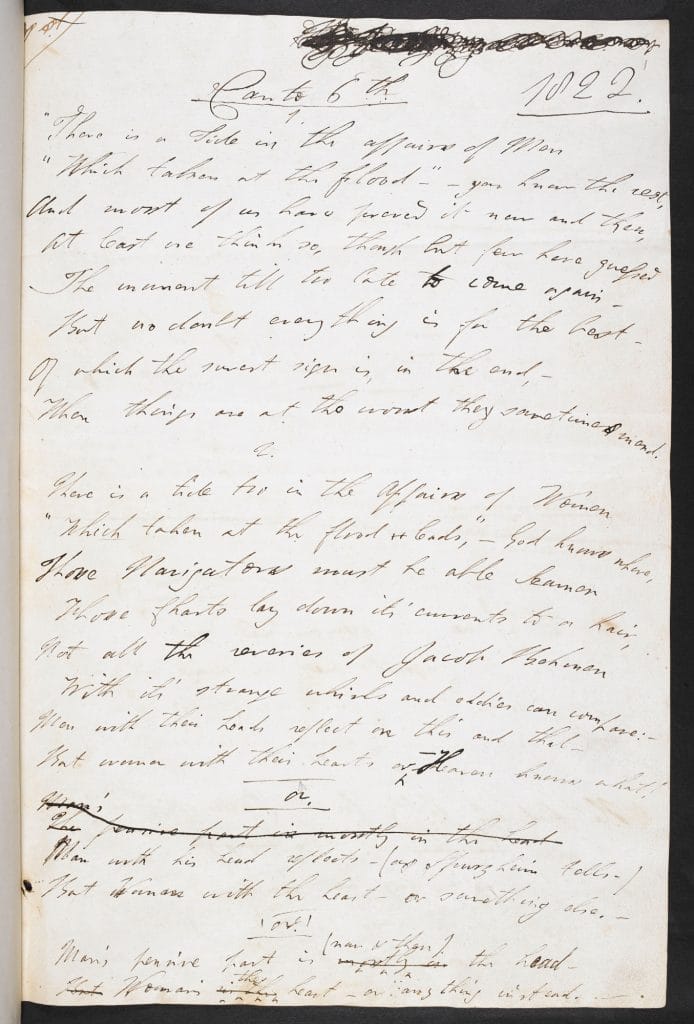 Canto 6th.
1822.
1
"There is a tide in the affairs of Men
"Which taken at the flood" - you know the rest,
And most of us have proved it now and then,
At least we think so, though but few have guessed
The moment till too late to come again -
But no doubt everything is for the best -
Of which the surest sign is, in the end, -
When things are at the worst they sometimes mend.
2.
There is a tide too in the affairs of Women
"Which taken at the flood leads", - God knows where,
Those Navigators must be able seamen
Whose Charts lay down its' currents to a hair,
Not all the reveries of Jacob Behmen
With it's strange whirls and eddies can compare: -
Men with their heads reflect on this and that -
But women with their hearts or Heaven knows what!
or.
Man's
The pensive part is mostly in the head
Man with his head reflects - (as Spurzheim tells -)
But Woman with the heart - or something else. -
(or)
(now & then)
Man's pensive part is mostly in the head -
But Woman's the heart - or anything instead. -